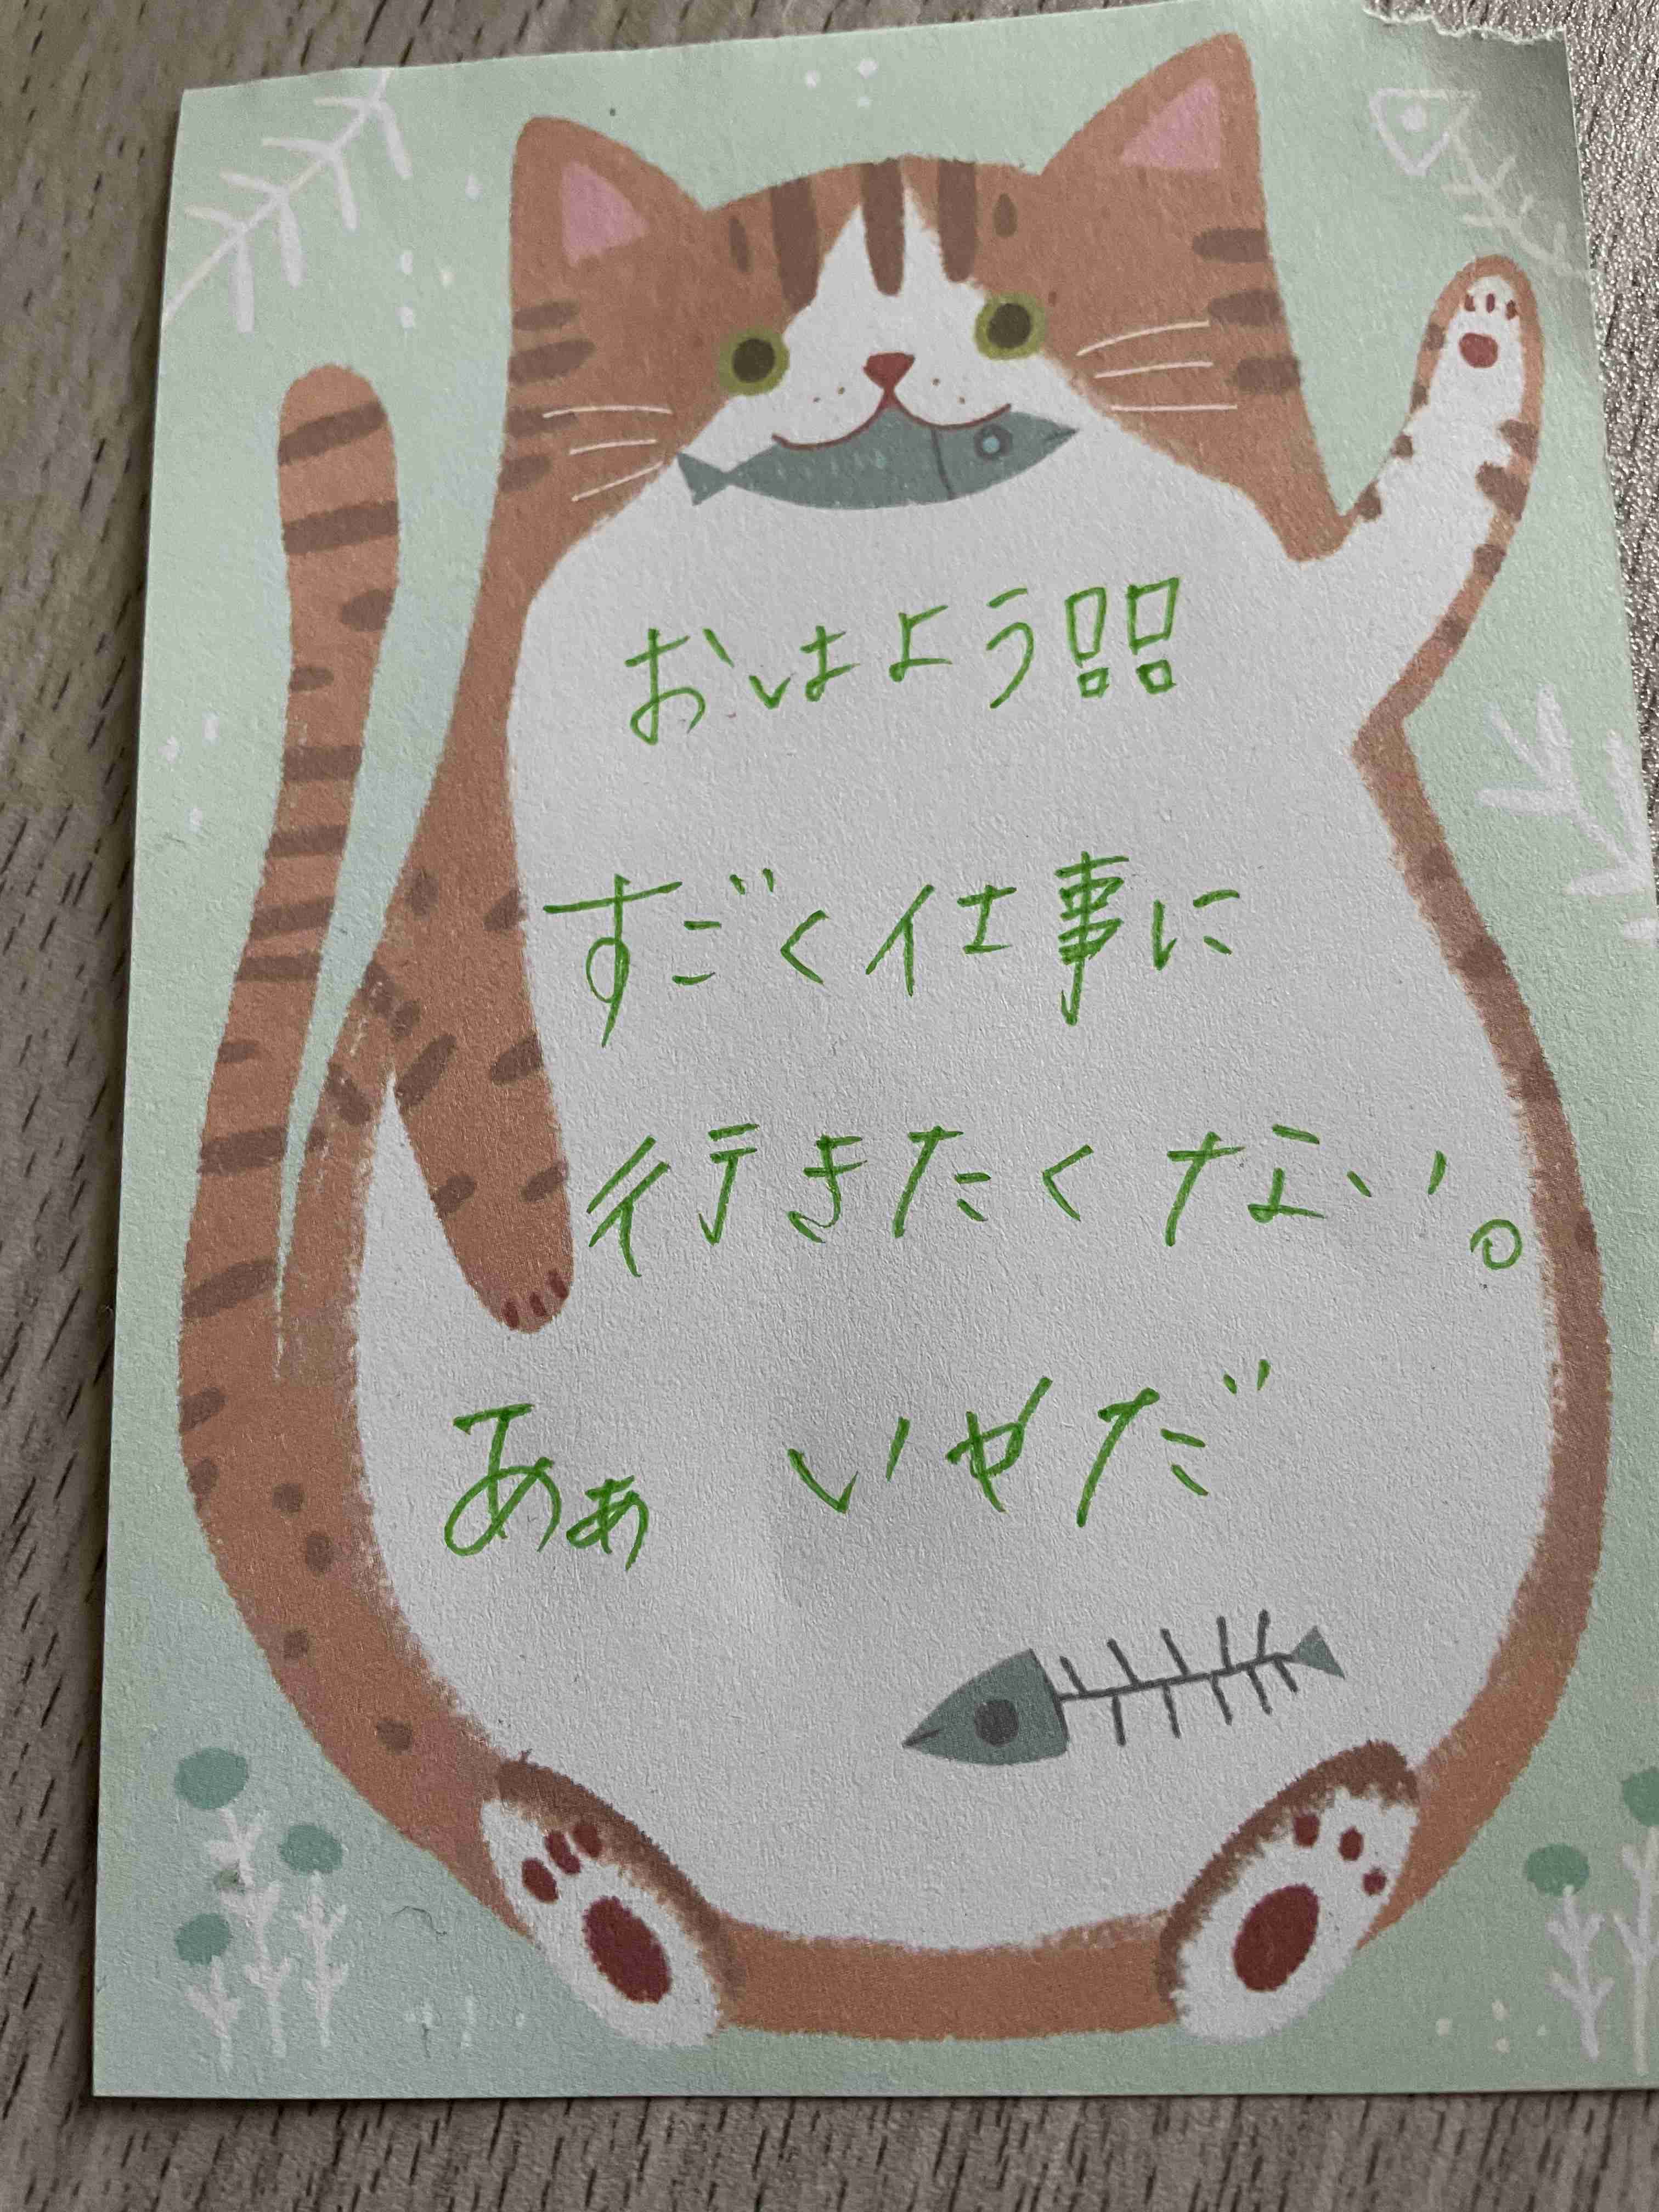 おはよう!!
すごく仕事に
行きたくない。
あぁ いやだ